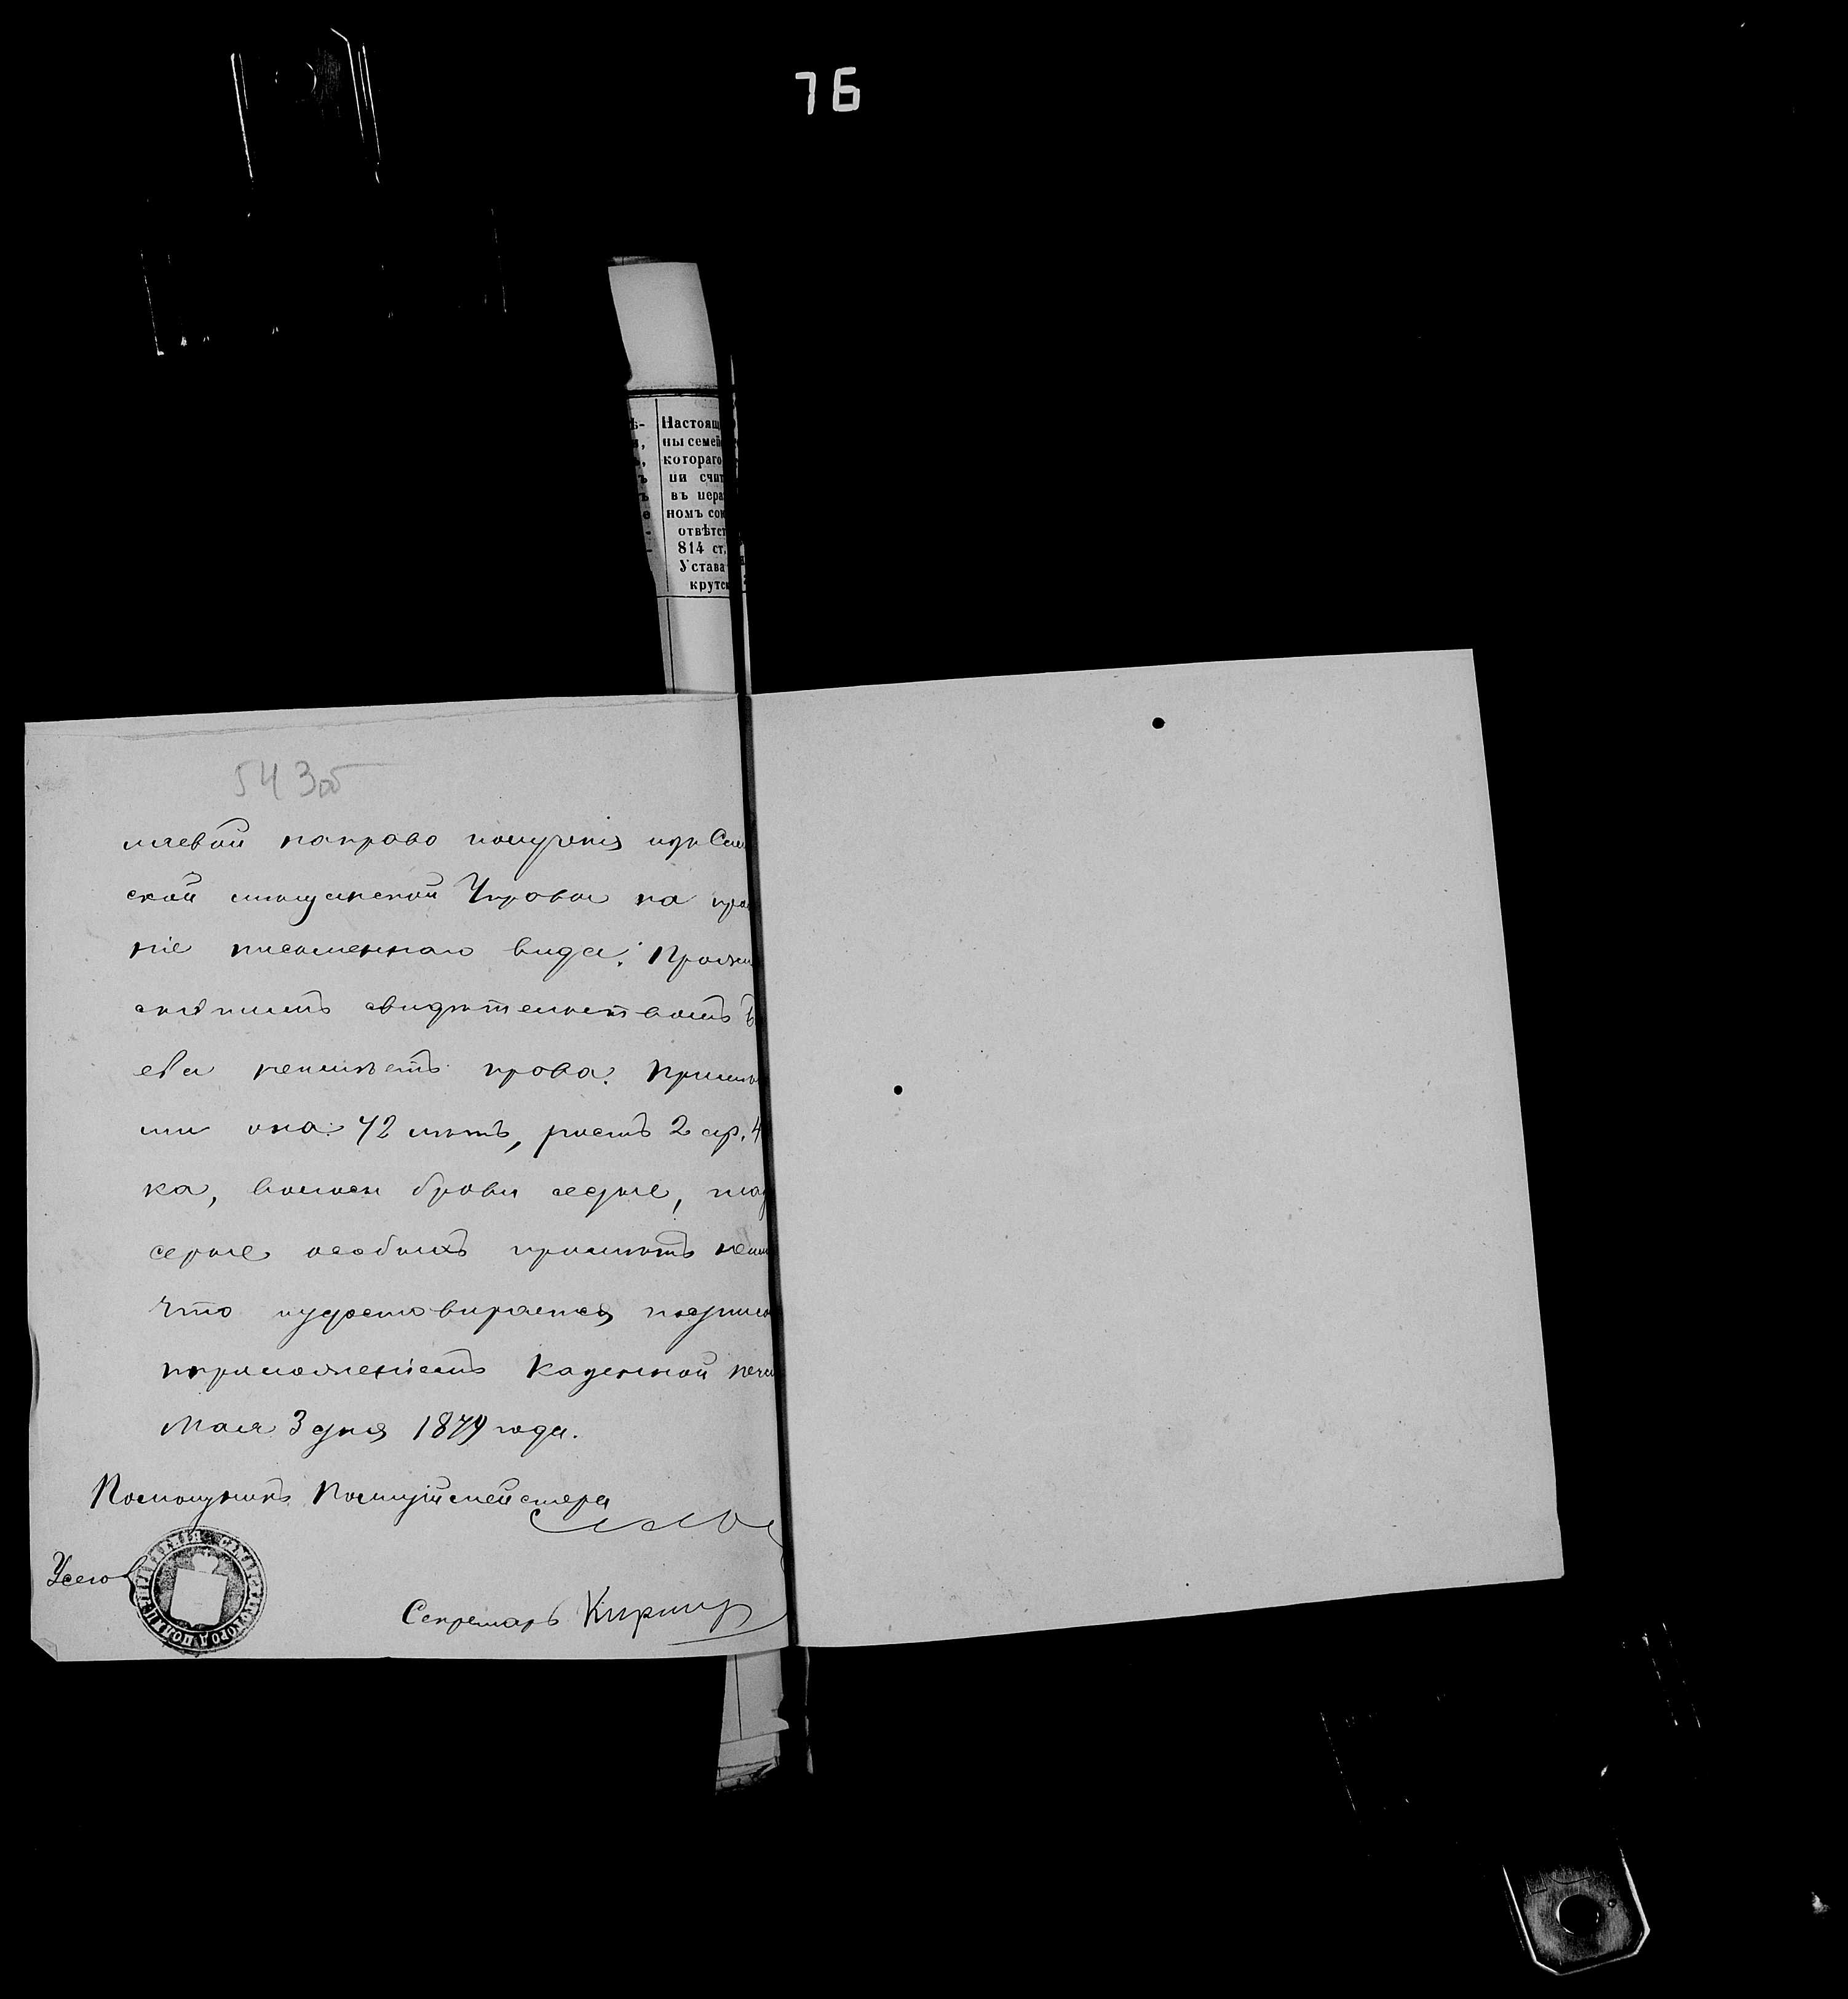 76
ѣ- Настоящ
ны семей
котораго
ни счит
въ нера
номъ сою
отвѣтст
814 ст.
Устава
крутск
543об
направо полученія изъ Сам
ской мѣщанской Управы на
ніе письменнаго вида. Прожи
симъ свидѣтельствомъ
ева неимѣетъ права. Примѣ
ми она: 72 лѣтъ, ростъ 2 ар. 4
ка, волосы брови седые, глаз
серые особыхъ примѣтъ неим
Что и удостовѣряется подписью
и приложеніемъ Казенной печа
Мая 3 дня 1879 года.
Помощникъ Полицiймейстера
Секретарь